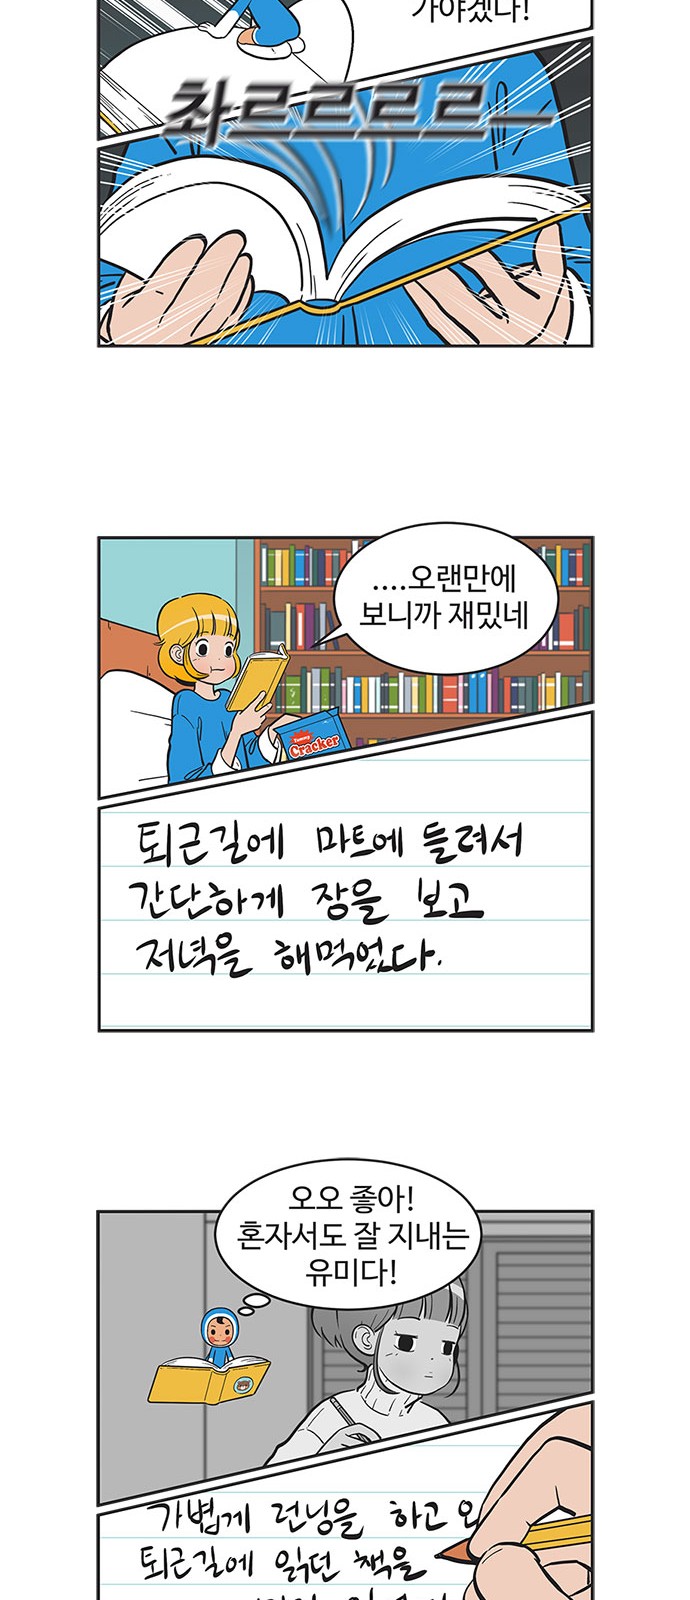 가야겠다!
촤르르르르—
....오랜만에
보니까 재밌네
Yummy
Cracker
퇴근길에 마트에 들려서
간단하게 장을 보고
저녁을 해먹었다.
오오 좋아!
혼자서도 잘 지내는
유미다!
가볍게 런닝을 하고 오
퇴근길에 읽던 책을